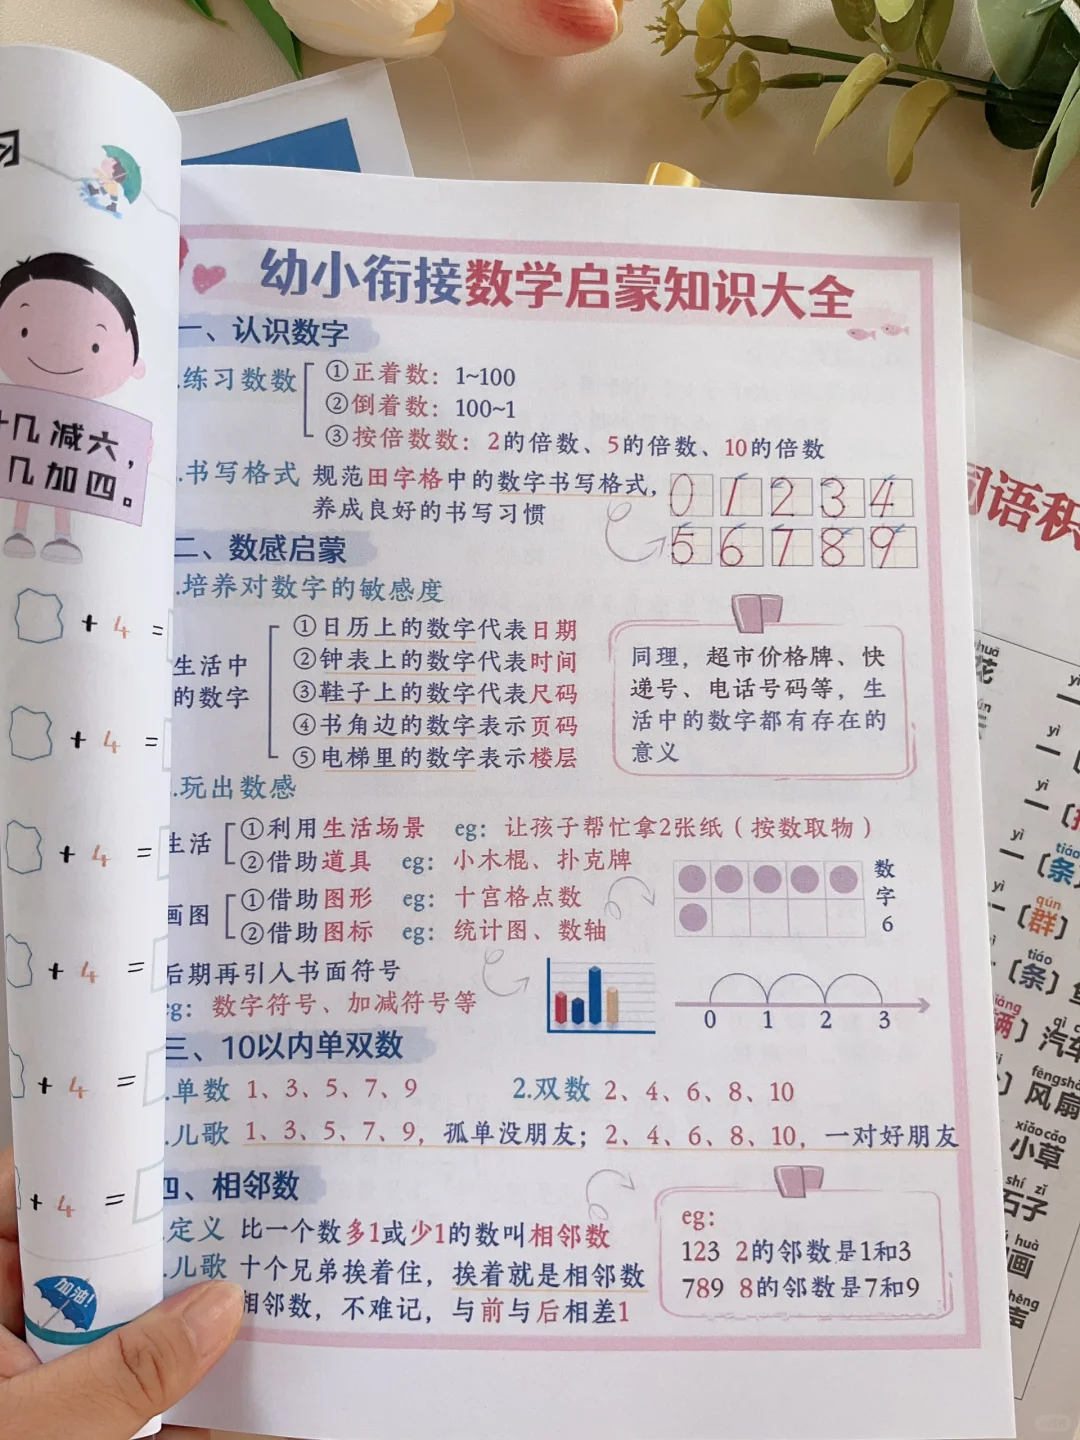 习
十几减六，
几加四。
+ 4 =
+ 4 =
+ 4 =
+ 4 =
+ 4 =
+ 4 =
加油！
幼小衔接数学启蒙知识大全
一、认识数字
.练习数数
①正着数：1~100
②倒着数：100~1
③按倍数数：2的倍数、5的倍数、10的倍数
.书写格式 规范田字格中的数字书写格式，
养成良好的书写习惯
0 1 2 3 4
5 6 7 8 9
二、数感启蒙
.培养对数字的敏感度
生活中
的数字
①日历上的数字代表日期
②钟表上的数字代表时间
③鞋子上的数字代表尺码
④书角边的数字表示页码
⑤电梯里的数字表示楼层
同理，超市价格牌、快
递号、电话号码等，生
活中的数字都有存在的
意义
.玩出数感
生活
①利用生活场景 eg：让孩子帮忙拿2张纸（按数取物）
②借助道具 eg：小木棍、扑克牌
画图
①借助图形 eg：十宫格点数
②借助图标 eg：统计图、数轴
数
字
6
后期再引入书面符号
eg：数字符号、加减符号等
0 1 2 3
三、10以内单双数
.单数 1、3、5、7、9 2.双数 2、4、6、8、10
.儿歌 1、3、5、7、9，孤单没朋友；2、4、6、8、10，一对好朋友
四、相邻数
.定义 比一个数多1或少1的数叫相邻数
.儿歌 十个兄弟挨着住，挨着就是相邻数
相邻数，不难记，与前与后相差1
eg：
123 2的邻数是1和3
789 8的邻数是7和9
词语积
huā
花
yì
yì
一
yì
一
yì tiáo
一（条）
yì qún
（群）
tiáo
（条）
liàng qì
辆）汽车
fēngshàn
）风扇
xiǎo cǎo
小草
shí zǐ
石子
huà
画
shēng
声